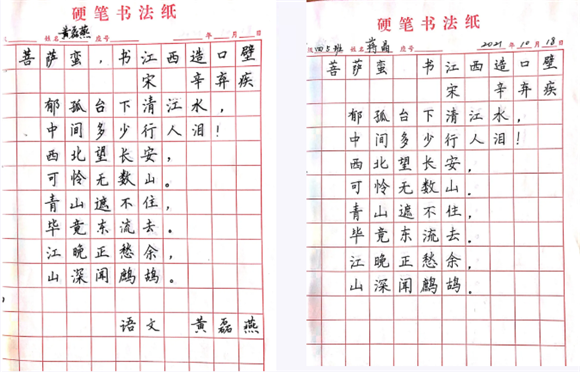 硬笔书法纸
姓名 黄磊燕 座号 年 月 日
菩萨蛮，书江西造口壁
宋 辛弃疾
郁孤台下清江水，
中间多少行人泪！
西北望长安，
可怜无数山。
青山遮不住，
毕竟东流去。
江晚正愁余，
山深闻鹧鸪。
语文 黄磊燕
硬笔书法纸
级 四5班 姓名 蒋晶 座号 2021年10月18日
菩萨蛮 书江西造口壁
宋 辛弃疾
郁孤台下清江水，
中间多少行人泪！
西北望长安，
可怜无数山.
青山遮不住，
毕竟东流去.
江晚正愁余，
山深闻鹧鸪.